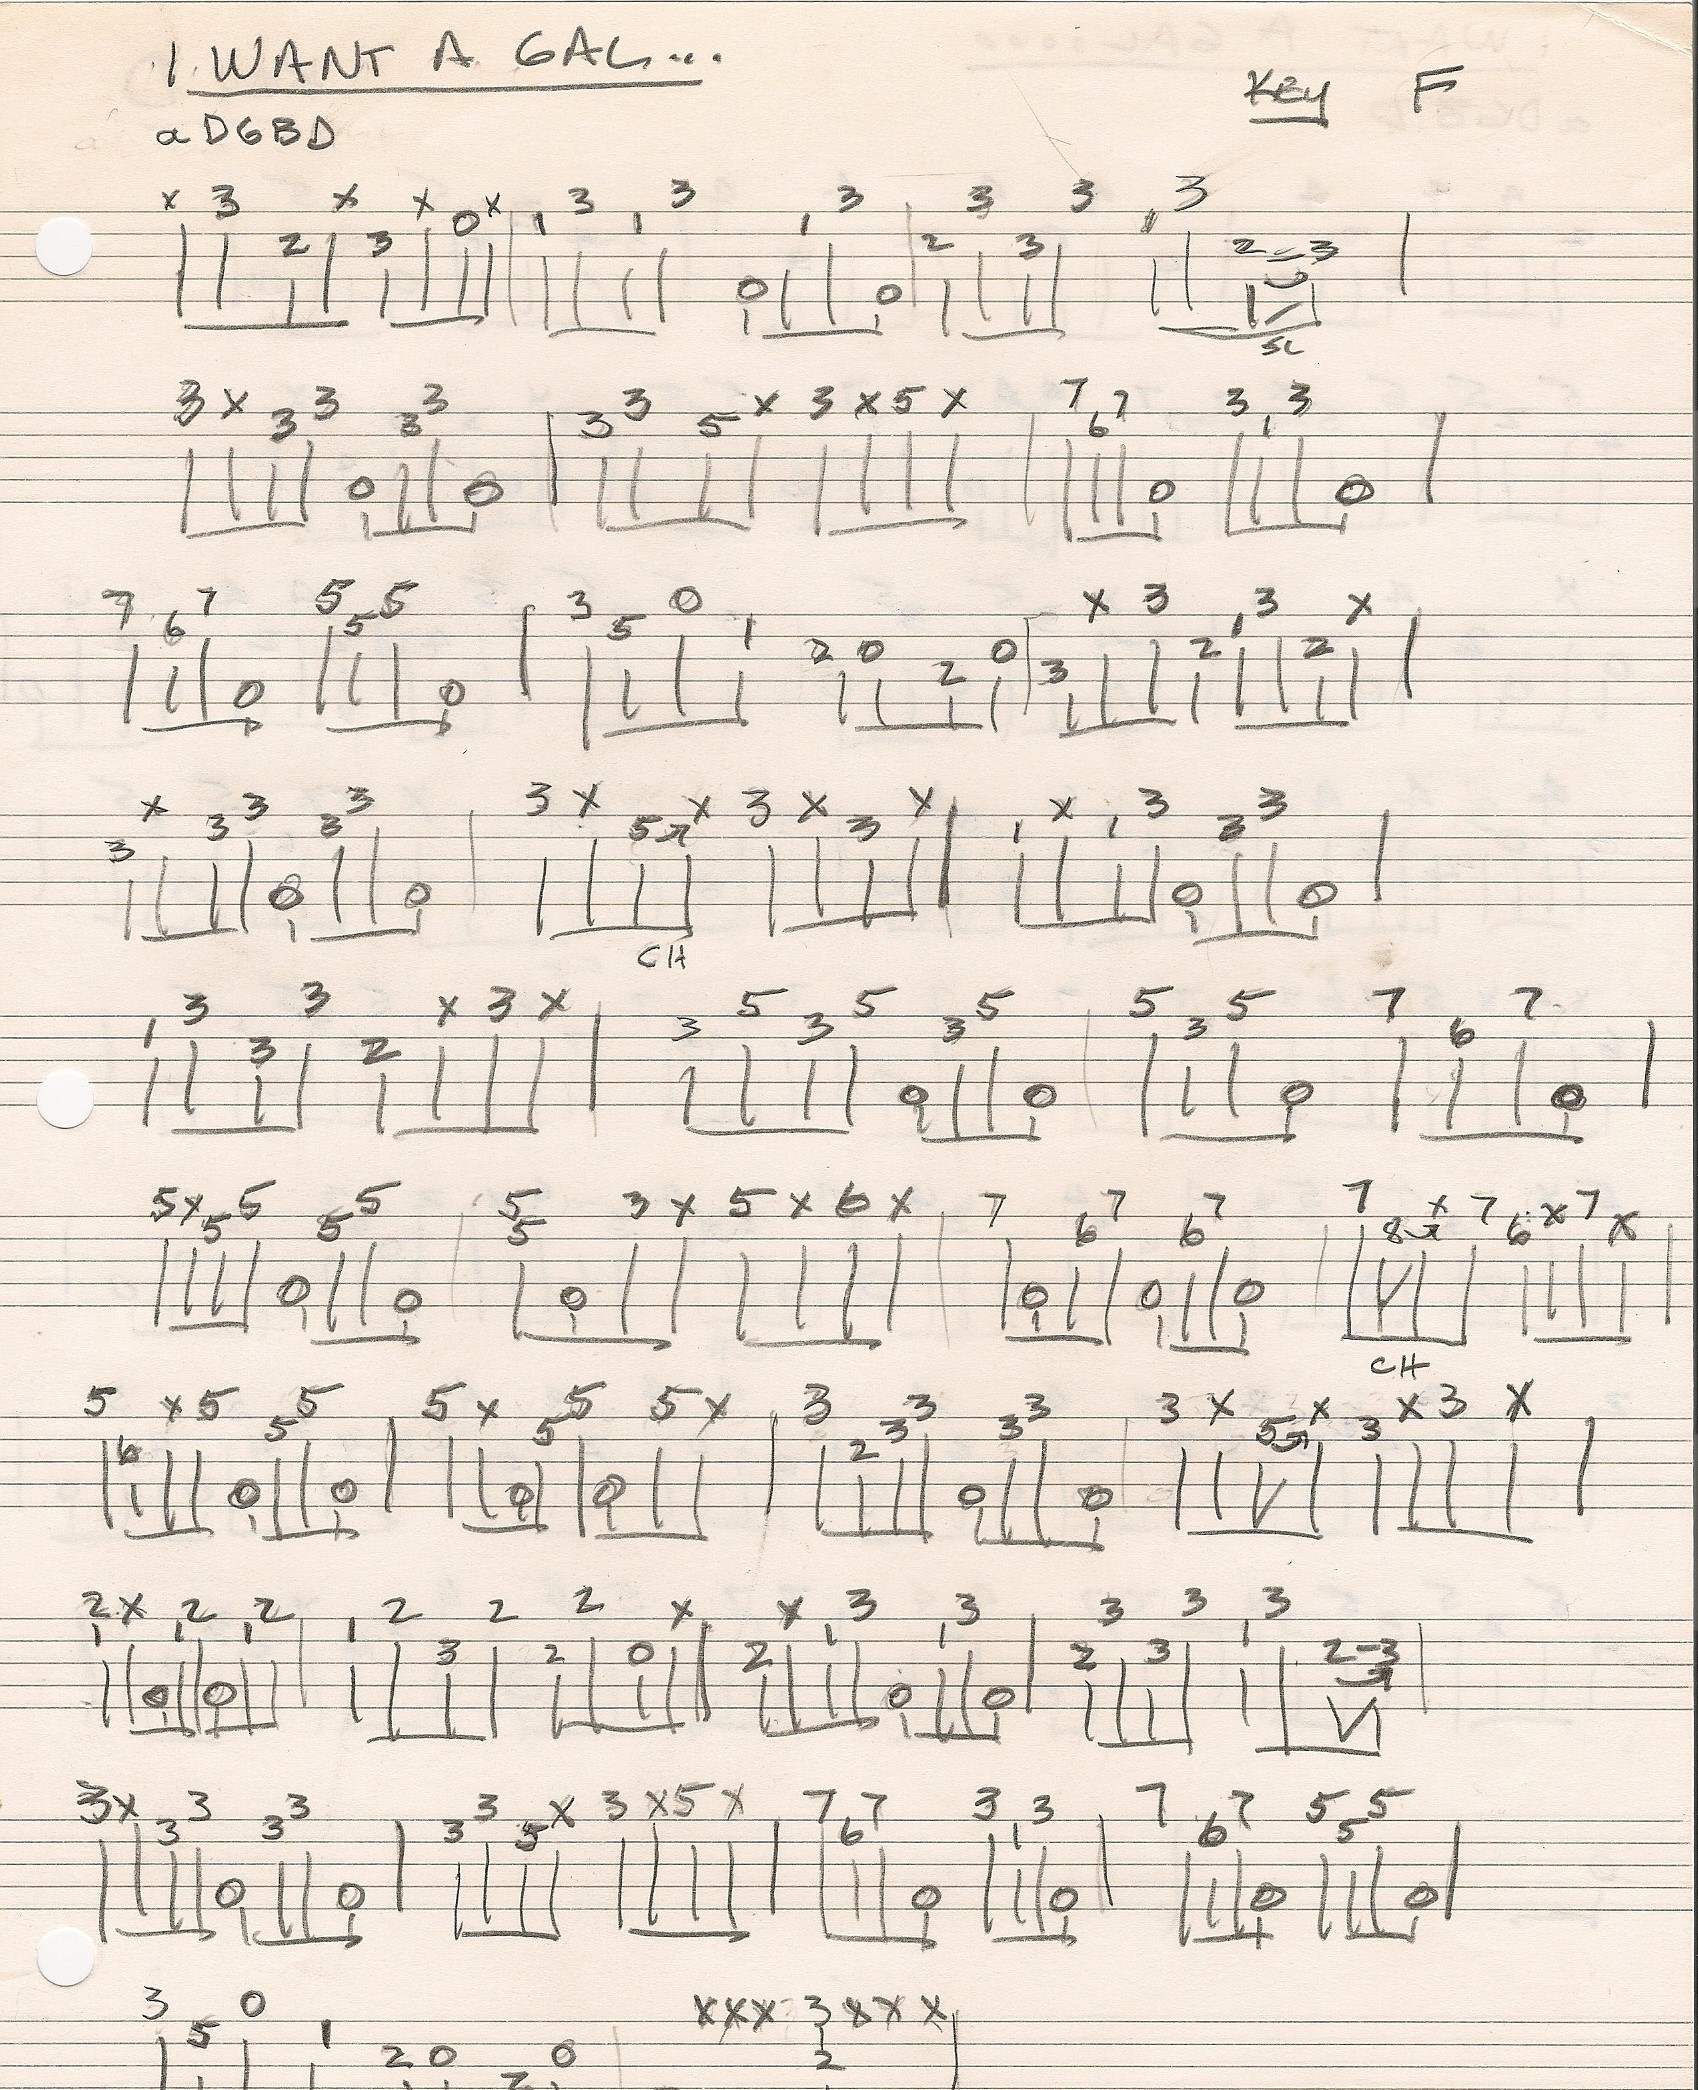 I WANT A GAL...
Key F
aDGBD
x 3 2 x 3 x 0 x 1 3 1 3 0 1 3 0 2 3 3 3 1 3 2-3
SL
3 x 3 3 0 3 3 0 3 3 5 x 3 x 5 x 7 6 7 0 3 1 3 0
7 6 7 0 5 5 5 0 3 5 0 1 2 0 2 0 3 x 3 2 1 3 2 x
3 x 3 3 0 3 3 0 3 x 5 x 3 x 3 x 1 x 1 3 0 3 3 0
CH
1 3 3 3 2 x 3 x 3 5 3 5 0 3 5 0 5 3 5 0 7 6 7 0
5 x 5 5 0 5 5 0 5 5 0 3 x 5 x 6 x 7 0 6 7 0 6 7 0 7 8 x 7 6 x 7 x
CH
5 6 x 5 0 5 5 0 5 x 0 5 5 0 5 x 3 2 3 3 0 3 3 0 3 x 5 x 3 x 3 x
1 2 x 0 1 2 0 1 2 1 2 3 2 2 2 0 x 2 x 1 3 0 1 3 0 2 3 3 3 1 3 2-3
3 x 3 3 0 3 3 0 3 3 5 x 3 x 5 x 7 6 7 0 3 1 3 0 7 6 7 0 5 5 5 0
3 5 0 1 2 0 2 0 x x x 3 x x x
2